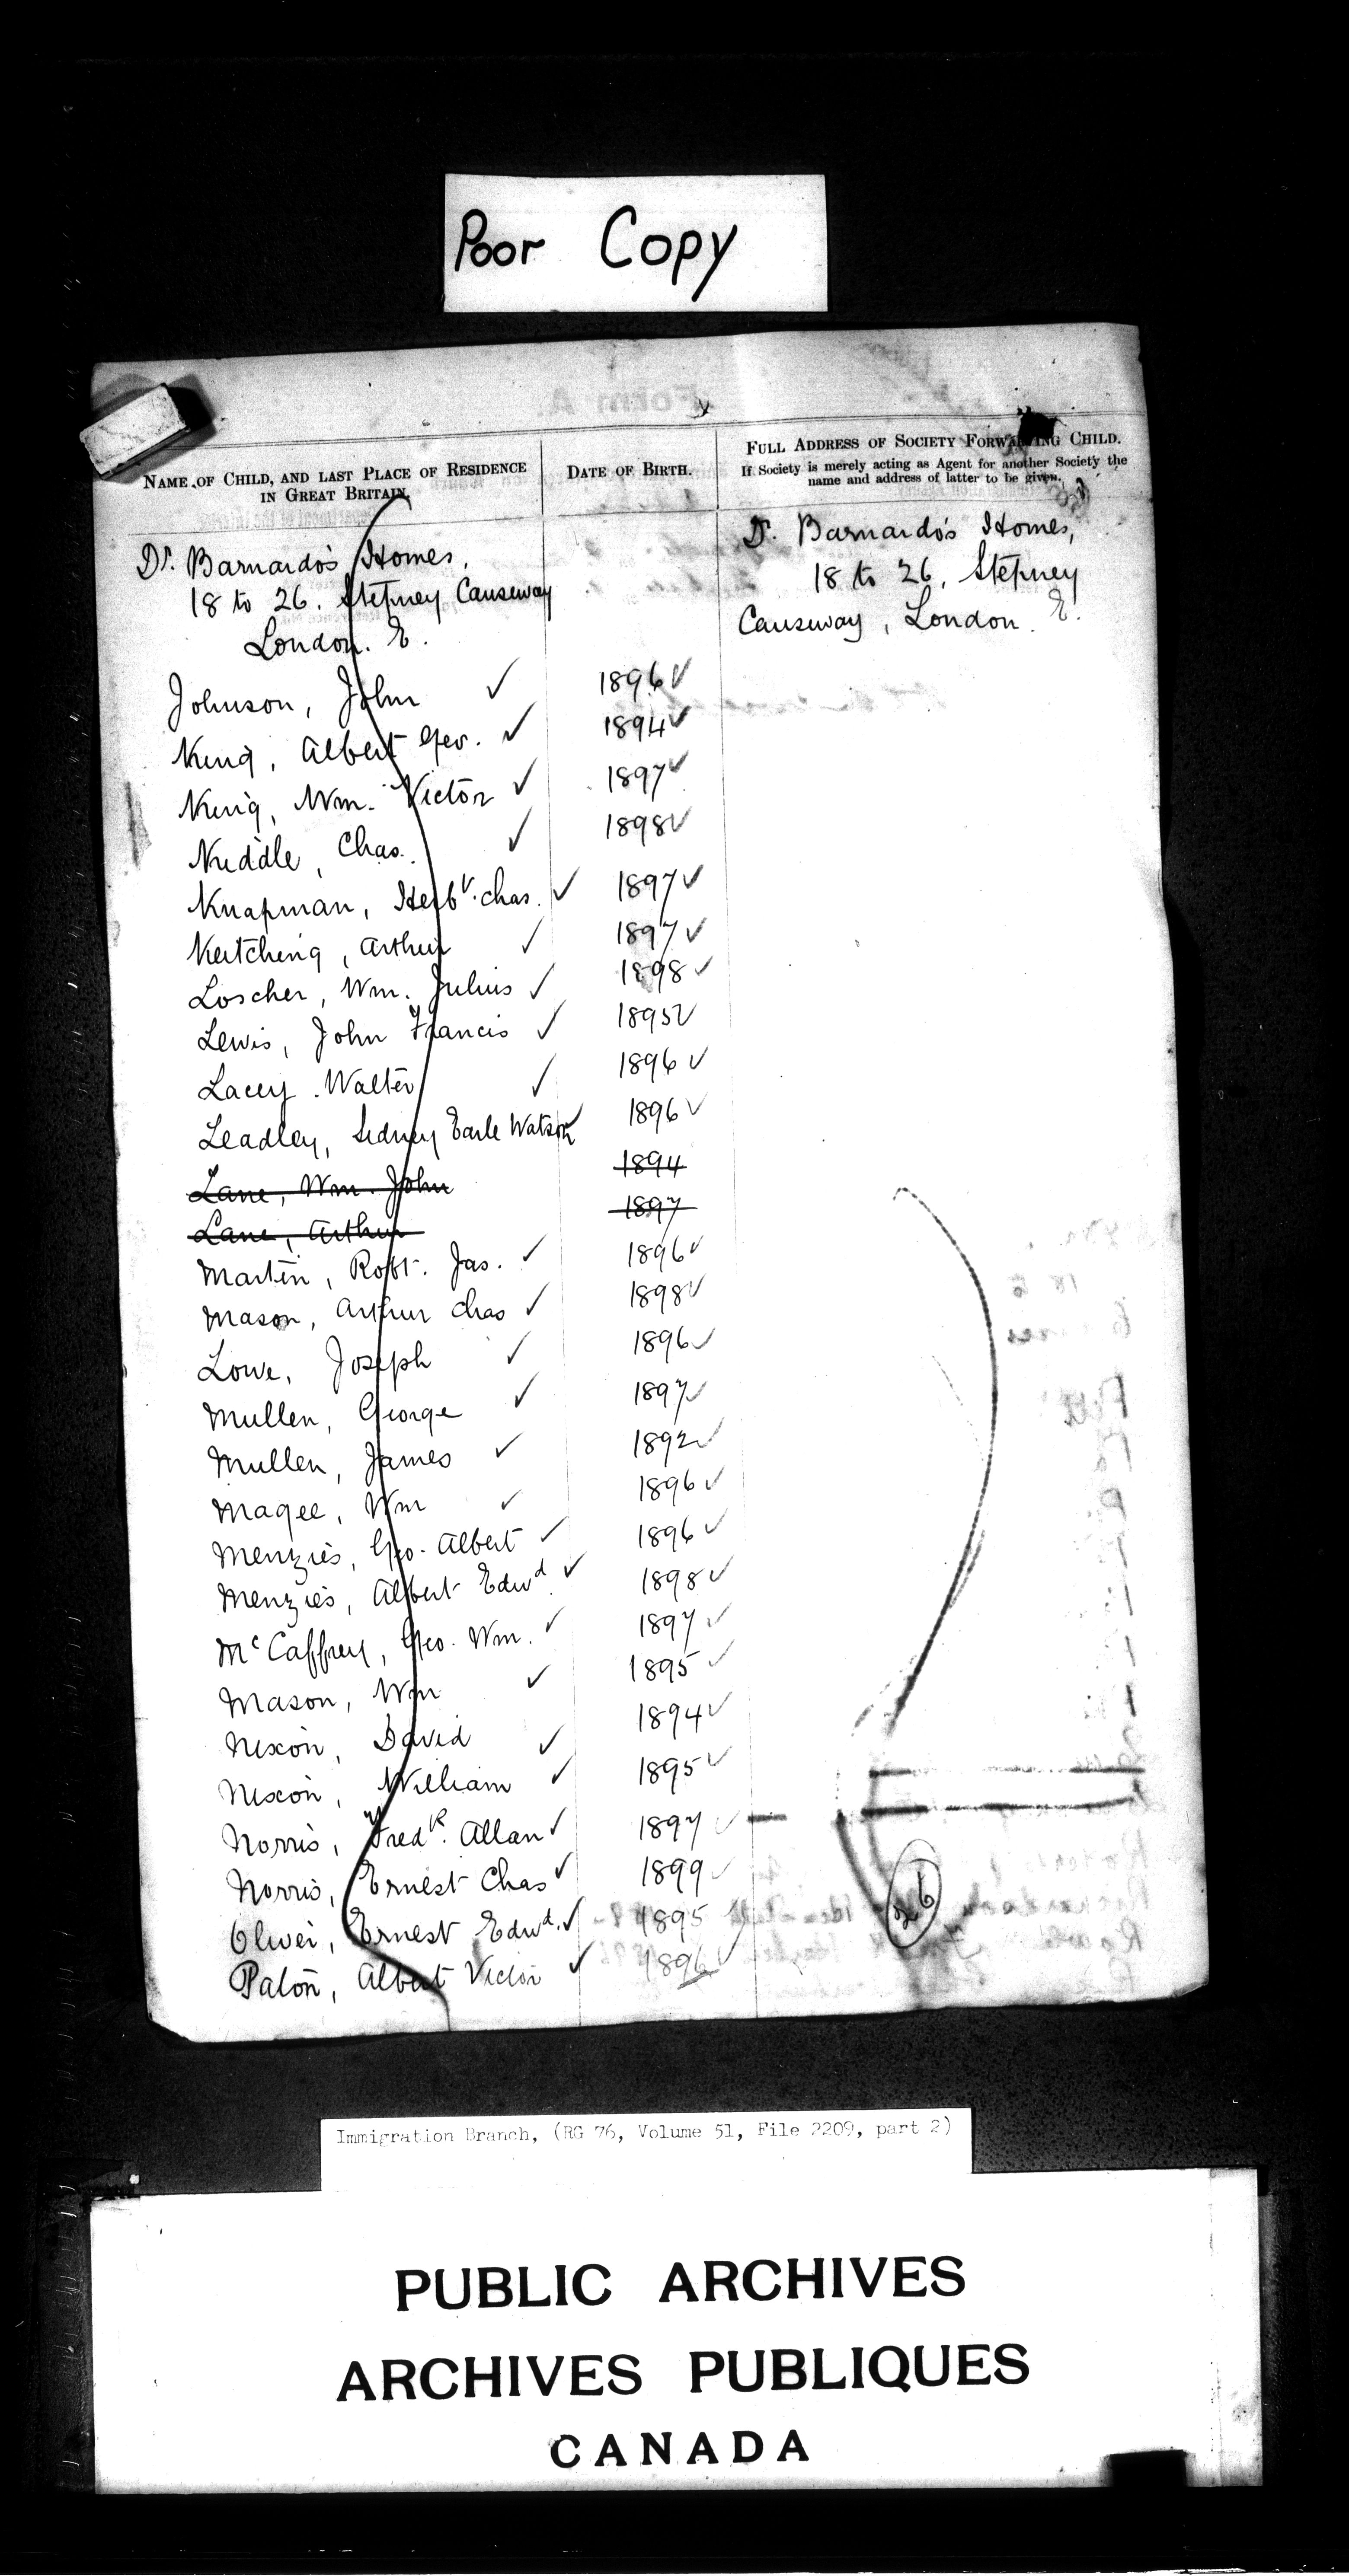 Poor Copy
NAME OF CHILD, AND LAST PLACE OF RESIDENCE
IN GREAT BRITAIN.
DATE OF BIRTH.
FULL ADDRESS OF SOCIETY FORWARDING CHILD.
If Society is merely acting as Agent for another Society the
name and address of latter to be given.
Dr. Barnardo's Homes,
18 to 26. Stepney Causeway
London. E.
Dr. Barnardo's Homes,
18 to 26, Stepney
Causeway, London. E.
Johnson, John ✓ 1896 ✓
King, Albert Geo. ✓ 1894 ✓
King, Wm. Victor ✓ 1897 ✓
Kiddle, Chas. ✓ 1898 ✓
Knapman, Herbt. Chas. ✓ 1897 ✓
Keitching, Arthur ✓ 1897 ✓
Loscher, Wm. Julius ✓ 1898 ✓
Lewis, John Francis ✓ 1895 ✓
Lacey. Walter ✓ 1896 ✓
Leadley, Sidney Earle Watson ✓ 1896 ✓
Lane, Wm. John 1894
Lane, Arthur 1897
Martin, Robt. Jas. ✓ 1896 ✓
Mason, Arthur Chas ✓ 1898 ✓
Lowe, Joseph ✓ 1896 ✓
Mullen, George ✓ 1897 ✓
Mullen, James ✓ 1892 ✓
Magee, Wm ✓ 1896 ✓
Menzies, Geo. Albert ✓ 1896 ✓
Menzies, Albert Edwd. ✓ 1898 ✓
McCaffrey, Geo. Wm. ✓ 1897 ✓
Mason, Wm ✓ 1895 ✓
Nixon, David ✓ 1894 ✓
Nixon, William ✓ 1895 ✓
Norris, Fredk. Allan ✓ 1897 ✓
Norris, Ernest Chas ✓ 1899 ✓
Oliver, Ernest Edwd. ✓ 1895 ✓
Paton, Albert Victor ✓ 1896 ✓
Immigration Branch, (RG 76, Volume 51, File 2209, part 2)
PUBLIC ARCHIVES
ARCHIVES PUBLIQUES
CANADA